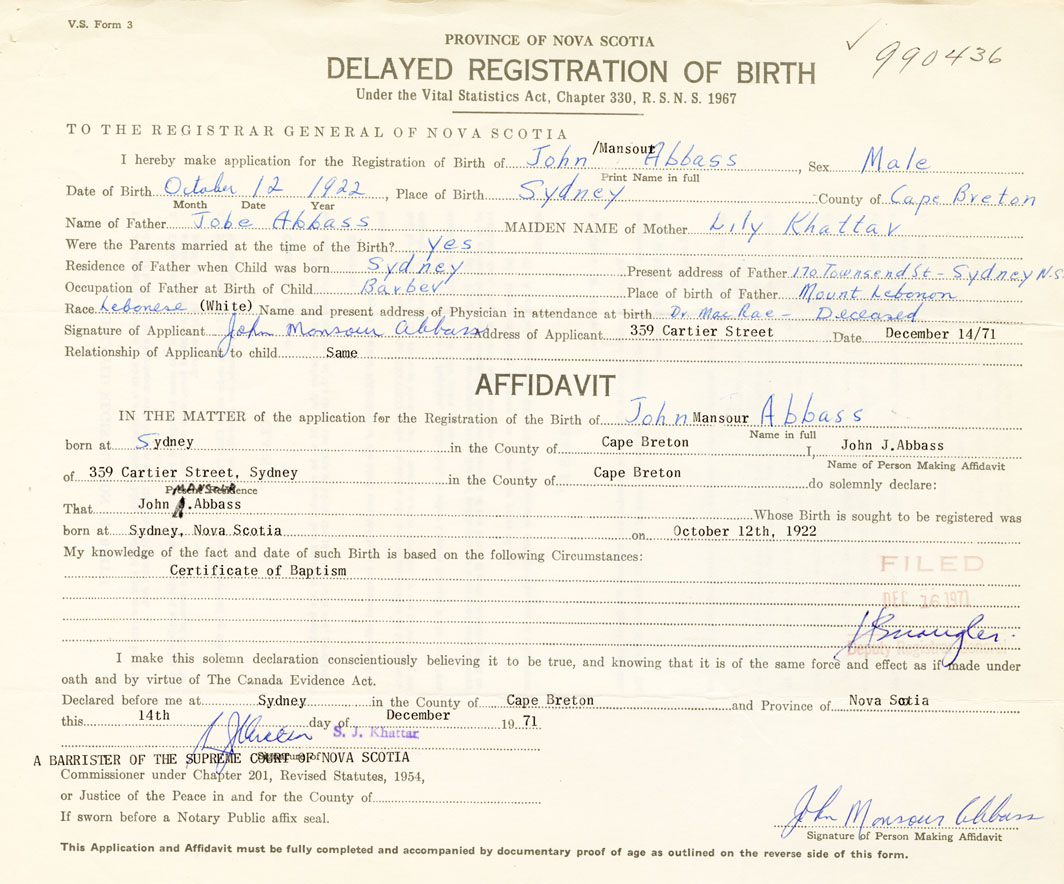 V.S. Form 3
✓ 990436
PROVINCE OF NOVA SCOTIA
DELAYED REGISTRATION OF BIRTH
Under the Vital Statistics Act, Chapter 330, R.S.N.S. 1967
TO THE REGISTRAR GENERAL OF NOVA SCOTIA
I hereby make application for the Registration of Birth of John /Mansour Abbass, Sex Male
Print Name in full
Date of Birth October 12 1922, Place of Birth Sydney County of Cape Breton
Month Date Year
Name of Father Jobe Abbass MAIDEN NAME of Mother Lily Khattar
Were the Parents married at the time of the Birth? yes
Residence of Father when Child was born Sydney Present address of Father 170 Townsend St - Sydney N.S.
Occupation of Father at Birth of Child Barber Place of birth of Father Mount Lebonon
Race Lebonese (White) Name and present address of Physician in attendance at birth Dr. MacRae - Deceased
Signature of Applicant John Monsour Abbass Address of Applicant 359 Cartier Street Date December 14/71
Relationship of Applicant to child Same
AFFIDAVIT
IN THE MATTER of the application for the Registration of the Birth of John Mansour Abbass
Name in full
born at Sydney in the County of Cape Breton I, John J.Abbass
Name of Person Making Affidavit
of 359 Cartier Street, Sydney in the County of Cape Breton do solemnly declare:
Present Residence
MANSOUR
That John .Abbass Whose Birth is sought to be registered was
born at Sydney, Nova Scotia on October 12th, 1922
My knowledge of the fact and date of such Birth is based on the following Circumstances:
Certificate of Baptism
FILED
DEC 16 1971
Deputy Registrar
I make this solemn declaration conscientiously believing it to be true, and knowing that it is of the same force and effect as if made under
oath and by virtue of The Canada Evidence Act.
Declared before me at Sydney in the County of Cape Breton and Province of Nova Scotia
this 14th day of December 19 71
S. J. Khattar
Signature of
A BARRISTER OF THE SUPREME COURT OF NOVA SCOTIA
Commissioner under Chapter 201, Revised Statutes, 1954,
or Justice of the Peace in and for the County of
If sworn before a Notary Public affix seal.
John Monsour Abbass
Signature of Person Making Affidavit
This Application and Affidavit must be fully completed and accompanied by documentary proof of age as outlined on the reverse side of this form.